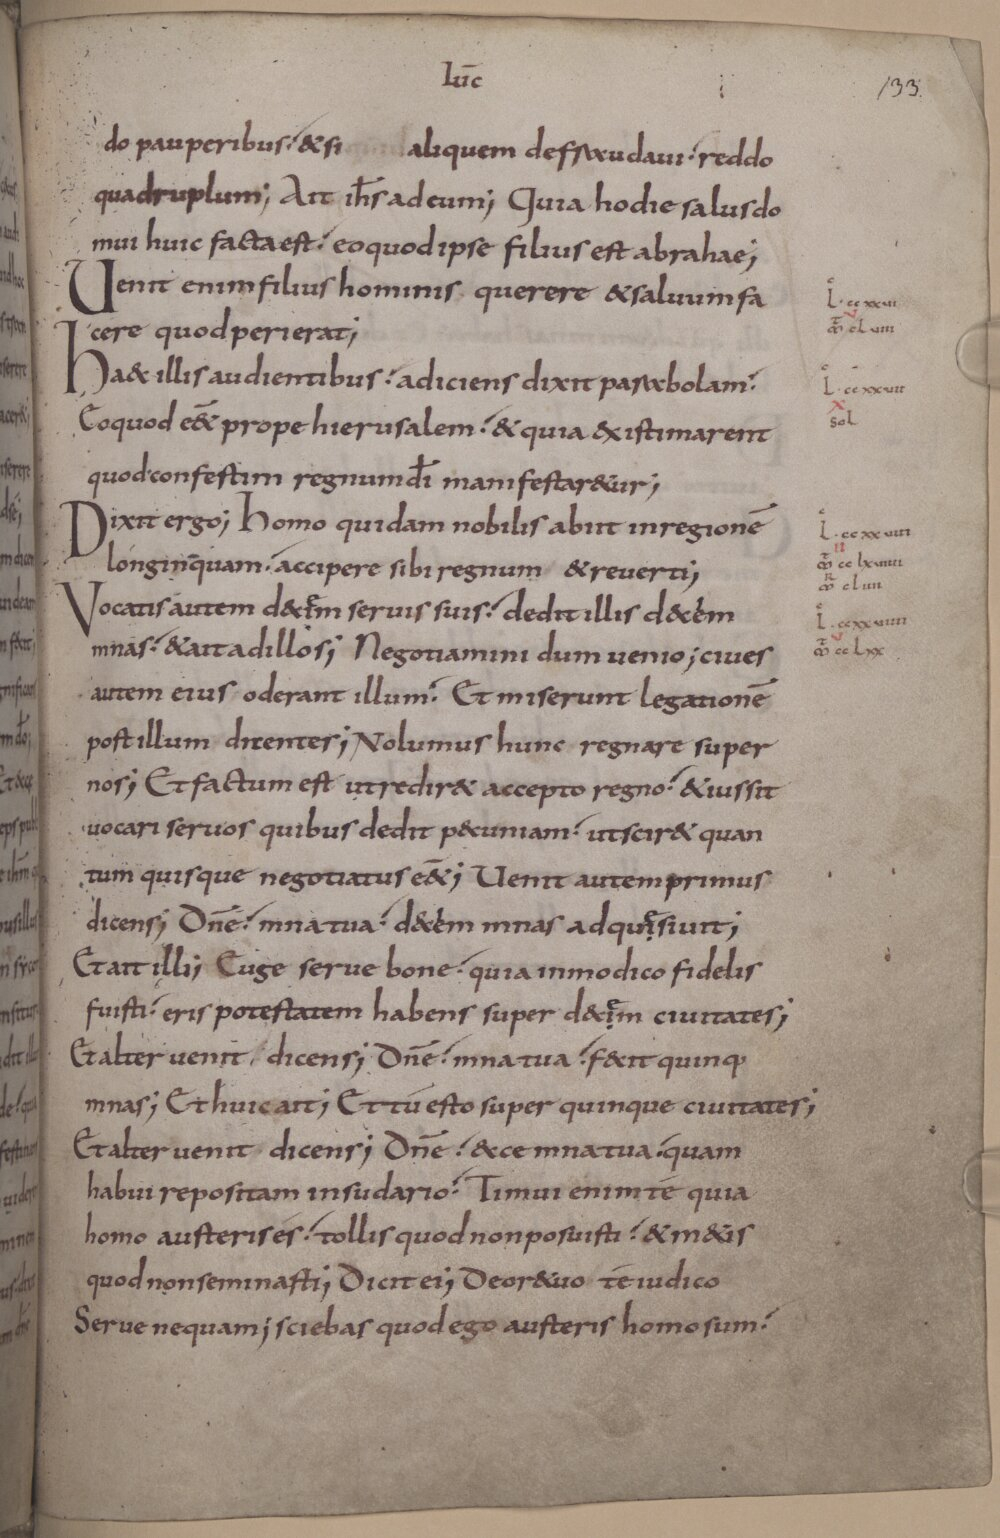 luc̄
133
do pauperibus: & si aliquem defraudaui: reddo
quadruplum; Ait ih̄s ad eum; Quia hodie salus do
mui huic facta est: eo quod ipse filius est abrahae;
Uenit enim filius hominis querere & saluum fa
cere quod perierat;
Haec illis audientibus: adiciens dixit parabolam:
Eo quod eēt prope hierusalem: & quia existimarent
quod confestim regnum dī manifestaretur;
Dixit ergo; Homo quidam nobilis abiit in regionē
longinquam: accipere sibi regnum & reuerti;
Vocatis autem decem seruis suis: dedit illis decem
mnas: & ait ad illos; Negotiamini dum uenio; ciues
autem eius oderant illum: Et miserunt legationē
post illum dicentes; Nolumus hunc regnare super
nos; Et factum est ut redir& accepto regno: & iussit
uocari seruos quibus dedit p&uniam: ut scir& quan
tum quisque negotiatus eēt; Uenit autem primus
dicens; Dn̄e: mna tua: decem mnas adquisiuit;
Et ait illi; Euge serue bone: quia in modico fidelis
fuisti: eris potestatem habens super decem ciuitates;
Et alter uenit dicens; Dn̄e: mna tua: fecit quinq;
mnas; Et huic ait; Et tu esto super quinque ciuitates;
Et alter uenit dicens; Dn̄e: ecce mna tua: quam
habui repositam in sudario: Timui enim te quia
homo austeris es: tollis quod non posuisti: & m&is
quod non seminasti; Dicit ei; De ore tuo te iudico
Serue nequam; sciebas quod ego austeris homo sum:
L. cc xx ui
m̄ c l uiii
L. cc xx uii
x
sol
L. cc xx uiii
ii
m̄ cc lx uiiii
m̄ c l iii
L. cc xx uiiii
v
m̄ cc lxx